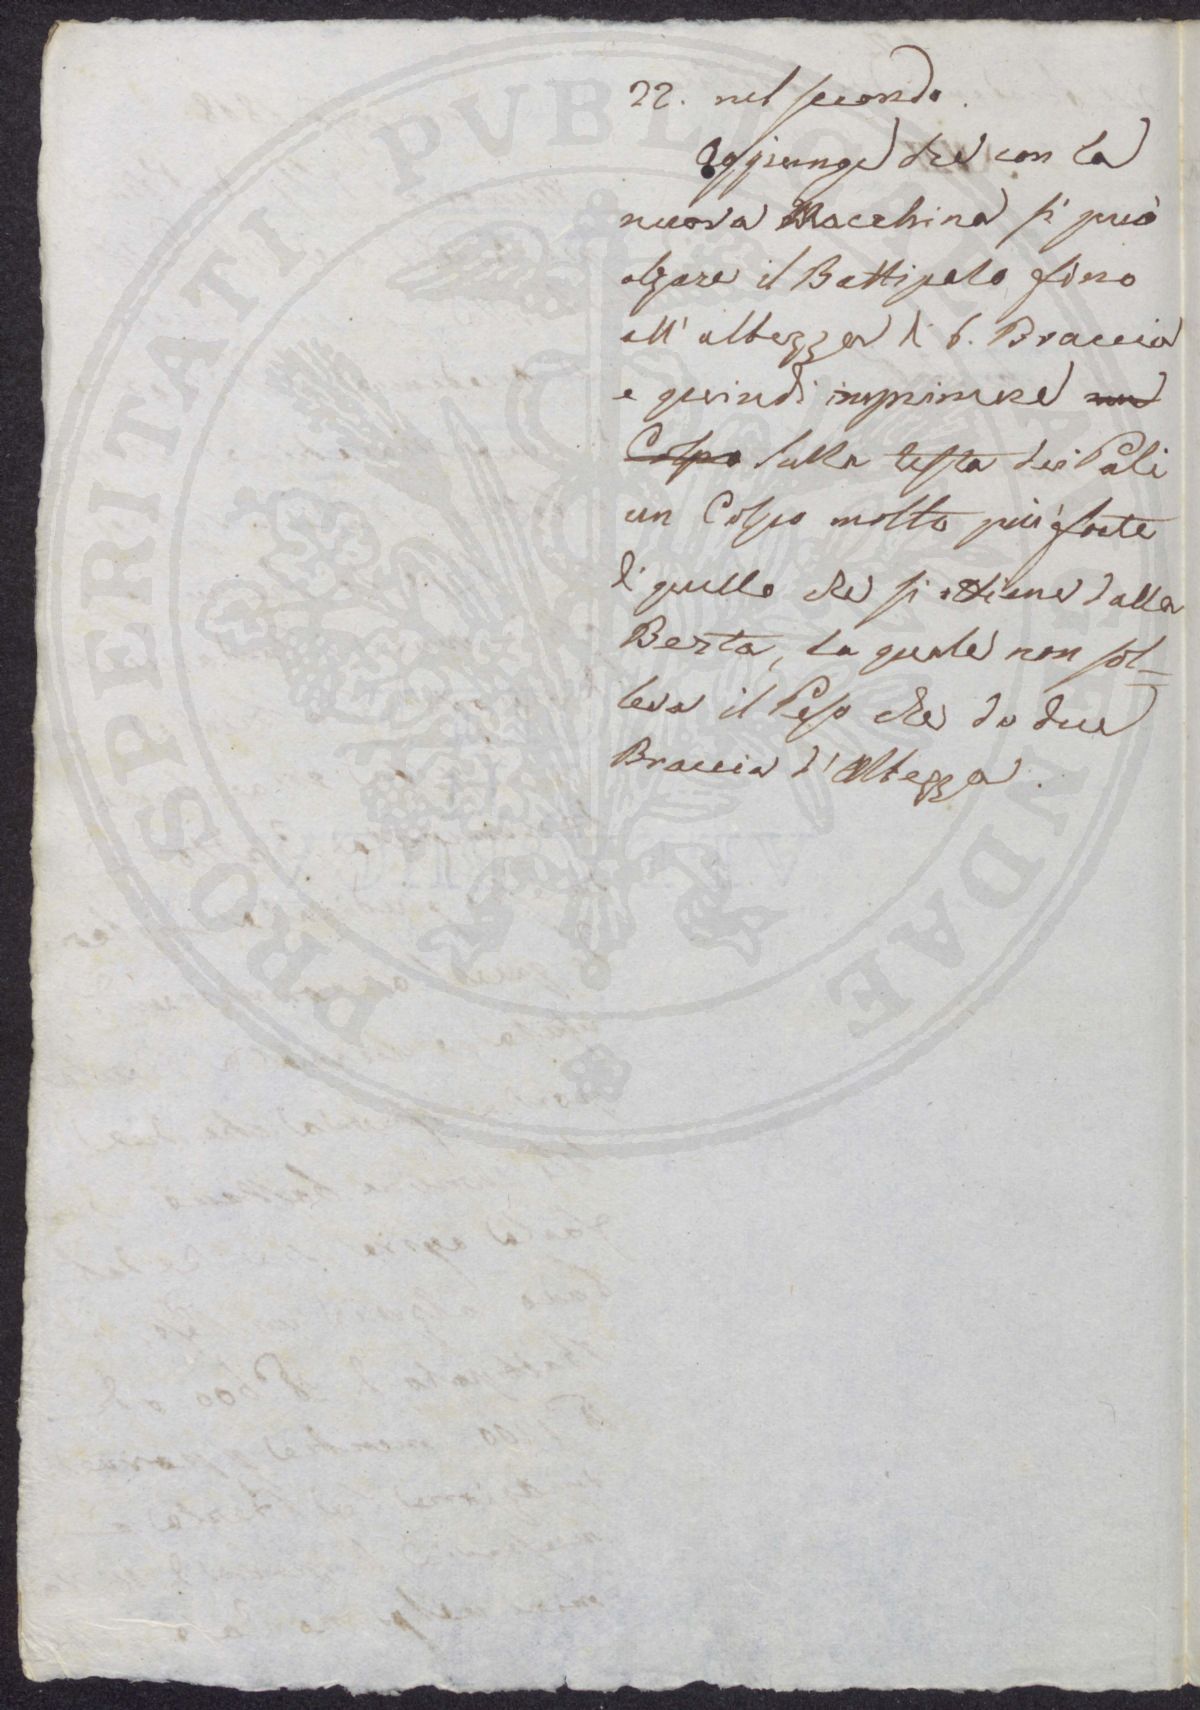 22. nel secondo.
Aggiunge che con la
nuova Macchina si può
alzare il Battipalo fino
all'altezza di 6. Braccia
e quindi imprimere un
Colpo sulla testa dei Pali
un Colpo molto più forte
di quello che si ottiene dalla
Berta, la quale non sol-
leva il Peso che da due
Braccia d'Altezza.
PROSPERITATI PVBLICAE AVGENDAE